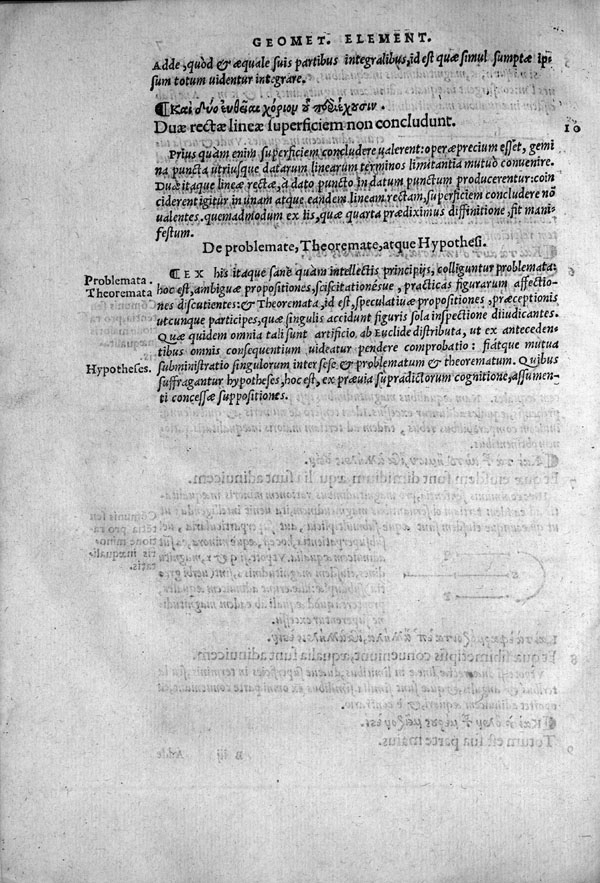 GEOMET. ELEMENT.
Adde, quòd & æquale suis partibus integralibus, id est quæ simul sumptæ ip-
sum totum uidentur integrare.
¶Καὶ δύο ἐυθεῖαι χόριον
Duæ rectæ lineæ superficiem non concludunt. 10
Prius quàm enim superficiem concludere ualerent: operæprecium esset, gemi
na puncta utriusque datarum linearum terminos limitantia mutuò conuenire.
Duæ itaque lineæ rectæ, à dato puncto in datum punctum producerentur: coin
ciderent igitur in unam atque eandem lineam rectam, superficiem concludere nō
ualentes. quemadmodum ex iis, quæ quarta prædiximus diffinitione, fit mani-
festum.
De problemate, Theoremate, atque Hypothesi.
Problemata.
Theoremata
¶EX his itaque sanè quàm intellectis principijs, colliguntur problemata:
hoc est, ambiguæ propositiones, sciscitationésue, practicas figurarum affectio-
nes discutientes: & Theoremata, id est, speculatiuæ propositiones, præceptionis
utcunque participes, quæ singulis accidunt figuris sola inspectione diiudicantes.
Quæ quidem omnia tali sunt artificio, ab Euclide distributa, ut ex anteceden-
tibus omnis consequentium uideatur pendere comprobatio: fiátque mutua
Hypotheses.
subministratio singulorum inter sese & problematum & theorematum. Quibus
suffragantur hypotheses, hoc est, ex præuia supradictorum cognitione, assumen-
ti concessæ suppositiones.